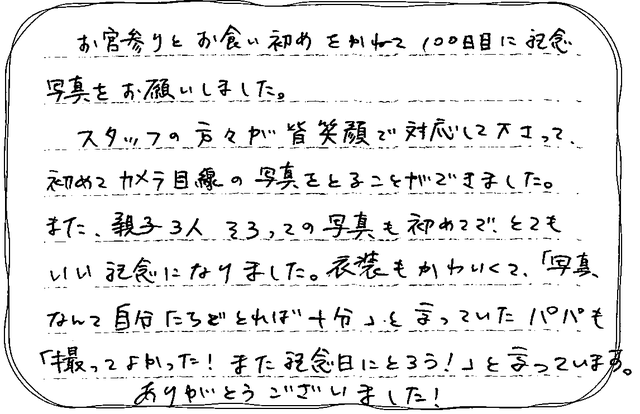 お宮参りとお食い初めをかねて100日目に記念
写真をお願いしました。
スタッフの方々が皆笑顔で対応して下さって、
初めてカメラ目線の写真をとることができました。
また、親子3人そろっての写真も初めてで、とても
いい記念になりました。衣装もかわいくて、「写真
なんて自分たちでとれば十分」と言っていたパパも
「撮ってよかった!また記念日にとろう!」と言っています。
ありがとうございました!